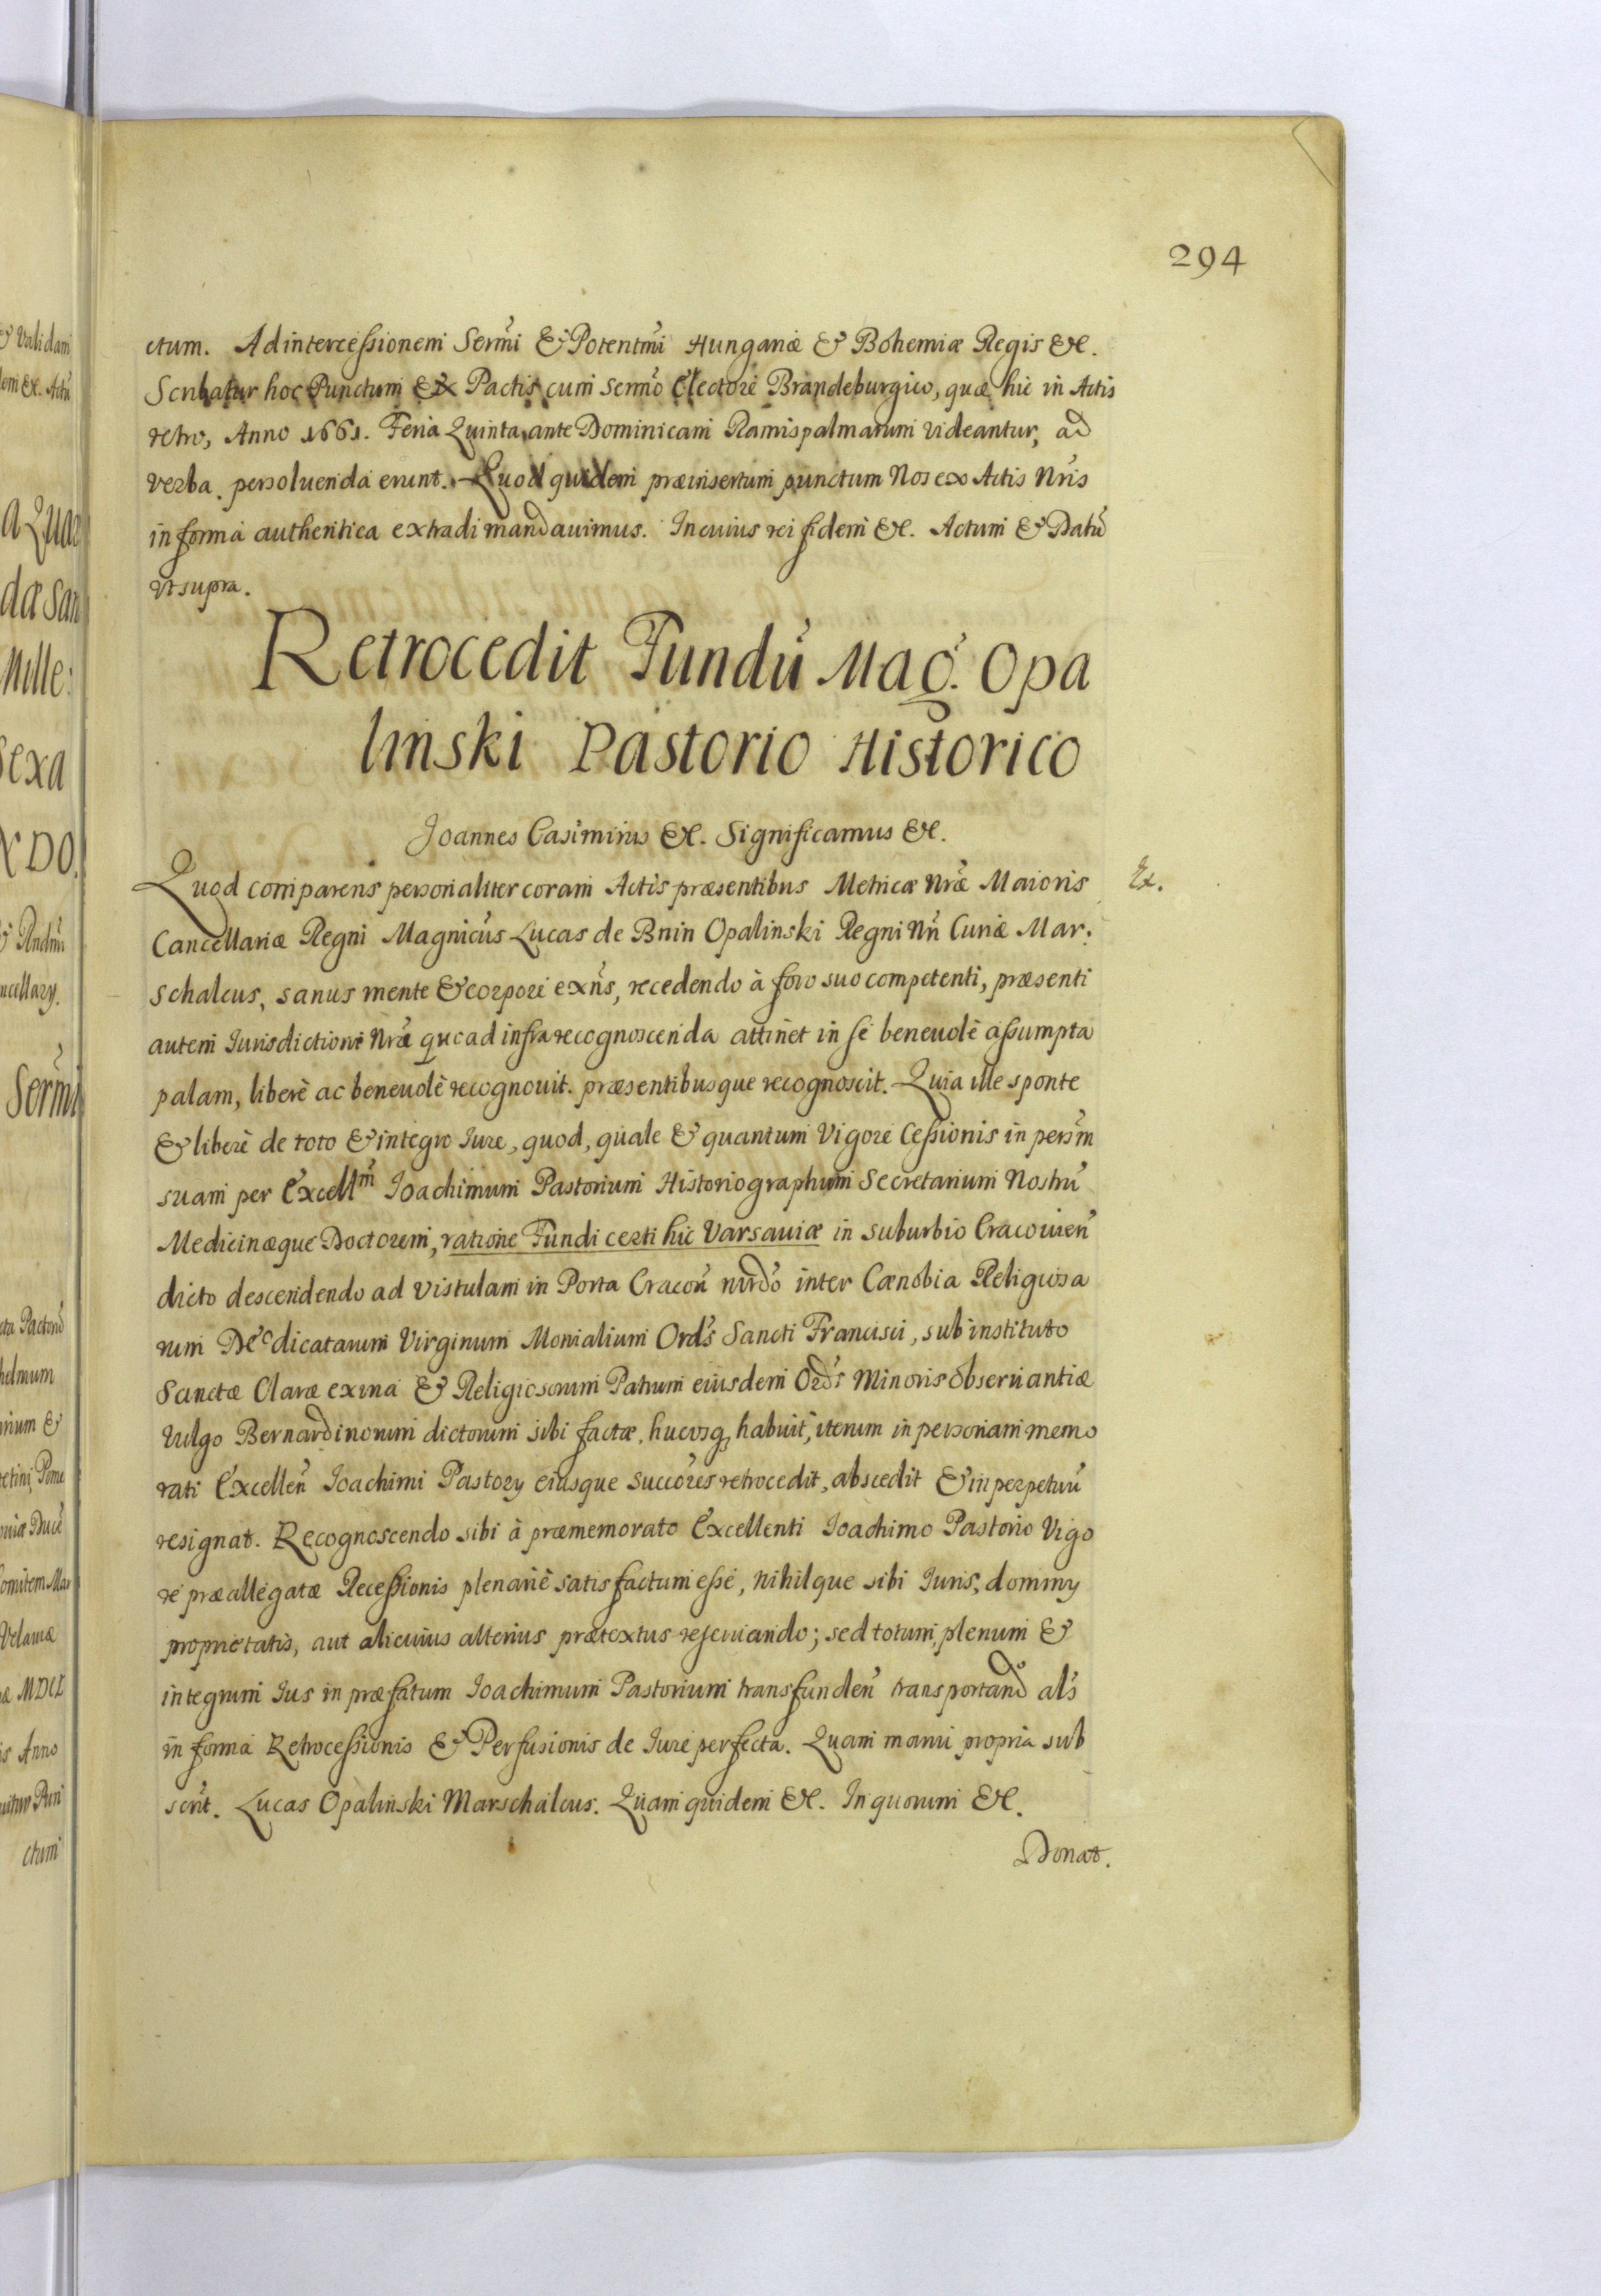 294
ctum. Ad intercessionem Sermi & Potentmi Hungariæ & Bohemiæ Regis &c.
Scribatur hoc Punctum Ex Pactis cum Sermo Electore Brandeburgico, quæ hic in Actis
retro, Anno 1661. Feria Quinta ante Dominicam Ramispalmarum videantur, ad
verba. persoluenda erunt. Quod quidem præinsertum punctum Nos ex Actis Nris
in forma authentica extradi mandauimus. In cuius rei fidem &c. Actum & Datū
vt supra.
Retrocedit Fundū Mag. Opa
linski Pastorio Historico
Joannes Casimirus &c. Significamus &c.
Quod comparens personaliter coram Actis præsentibus Metricæ Nræ Maioris
Ex.
Cancellariæ Regni Magnicus Lucas de Bnin Opalinski Regni Nri Curiæ Mar.
schalcus, sanus mente & corpore exns, recedendo à foro suo competenti, præsenti
autem Jurisdictione Nra quoad infra recognoscenda attinet in se beneuolè assumpta
palam, liberè ac beneuolè recognouit. præsentibusque recognoscit. Quia ille sponte
& liberè de toto & integro Jure, quod, quale & quantum Vigore Cessionis in persm
suam per Excellm Joachimum Pastorium Historiographum Secretarium Nostrū
Medicinæque Doctorem, ratione Fundi certi hic Varsauiæ in suburbio Cracouien
dicto descendendo ad Vistulam in Porta Cracoū nrdo inter Cænobia Religiosa
rum Deo dicatarum Virginum Monialium Ords Sancti Francisci, sub instituto
Sanctæ Claræ exina & Religiosorum Patrum eiusdem Ords Minoris obseruantiæ
vulgo Bernardinorum dictorum sibi factæ, hucusq habuit, iterum in personam memo
rati Excelleñ Joachimi Pastory eiusque Succores retrocedit, abscedit & in perpetuū
resignat. Recognoscendo sibi à præmemorato Excellenti Joachimo Pastorio Vigo
re præallegatæ Recessionis plenariè satisfactum esse, nihilque sibi Juris, dominy
proprietatis, aut alicuius alterius prætextus reseruando; sed totum, plenum &
integrum Jus in præfatum Joachimum Pastorium transfunden transportando als
in forma Retrocessionis & Perfusionis de Jure perfecta. Quam manu propria sub
scrit. Lucas Opalinski Marschalcus. Quam quidem &c. In quorum &c.
Donat.